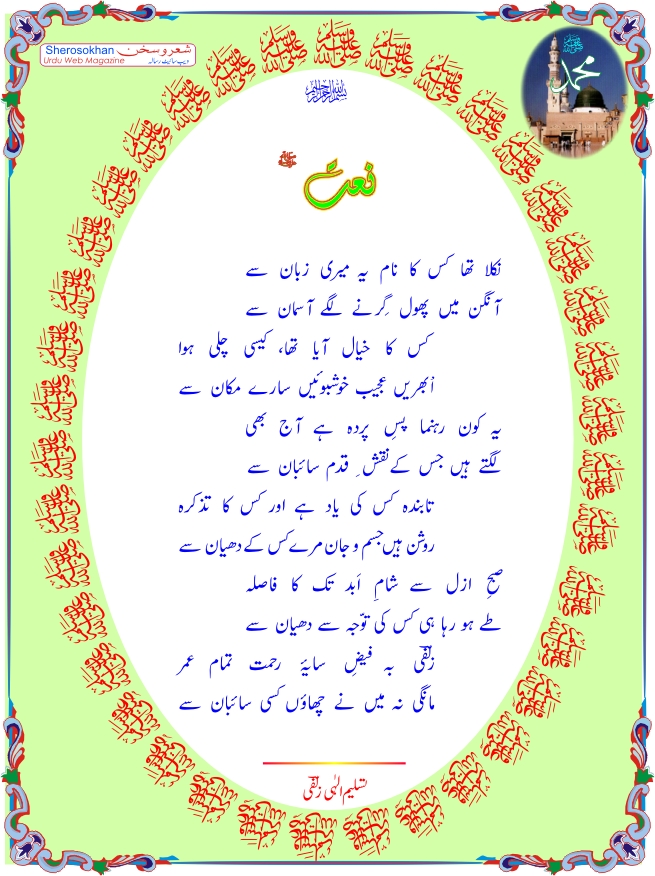 Sherosokhan شعر و سخن
Urdu Web Magazine ویب سائیٹ رسالہ
محمد ﷺ
بسم اللہ الرحمن الرحیم
نعت ﷺ
نکلا تھا کس کا نام یہ میری زبان سے
آنگن میں پھول گِرنے لگے آسمان سے
کس کا خیال آیا تھا، کیسی چلی ہوا
اُبھریں عجیب خوشبوئیں سارے مکان سے
یہ کون رہنما پسِ پردہ ہے آج بھی
لگتے ہیں جس کے نقشِ قدم سائبان سے
تابندہ کس کی یاد ہے اور کس کا تذکرہ
روشن ہیں جسم و جان مرے کس کے دھیان سے
صبحِ ازل سے شامِ اَبد تک کا فاصلہ
طے ہو رہا ہی کس کی توّجہ سے دھیان سے
زلفی بہ فیضِ سایۂ رحمت تمام عمر
مانگی نہ میں نے چھاؤں کسی سائبان سے
تسلیم الٰہی زلفی
صلی اللہ علیہ وسلم